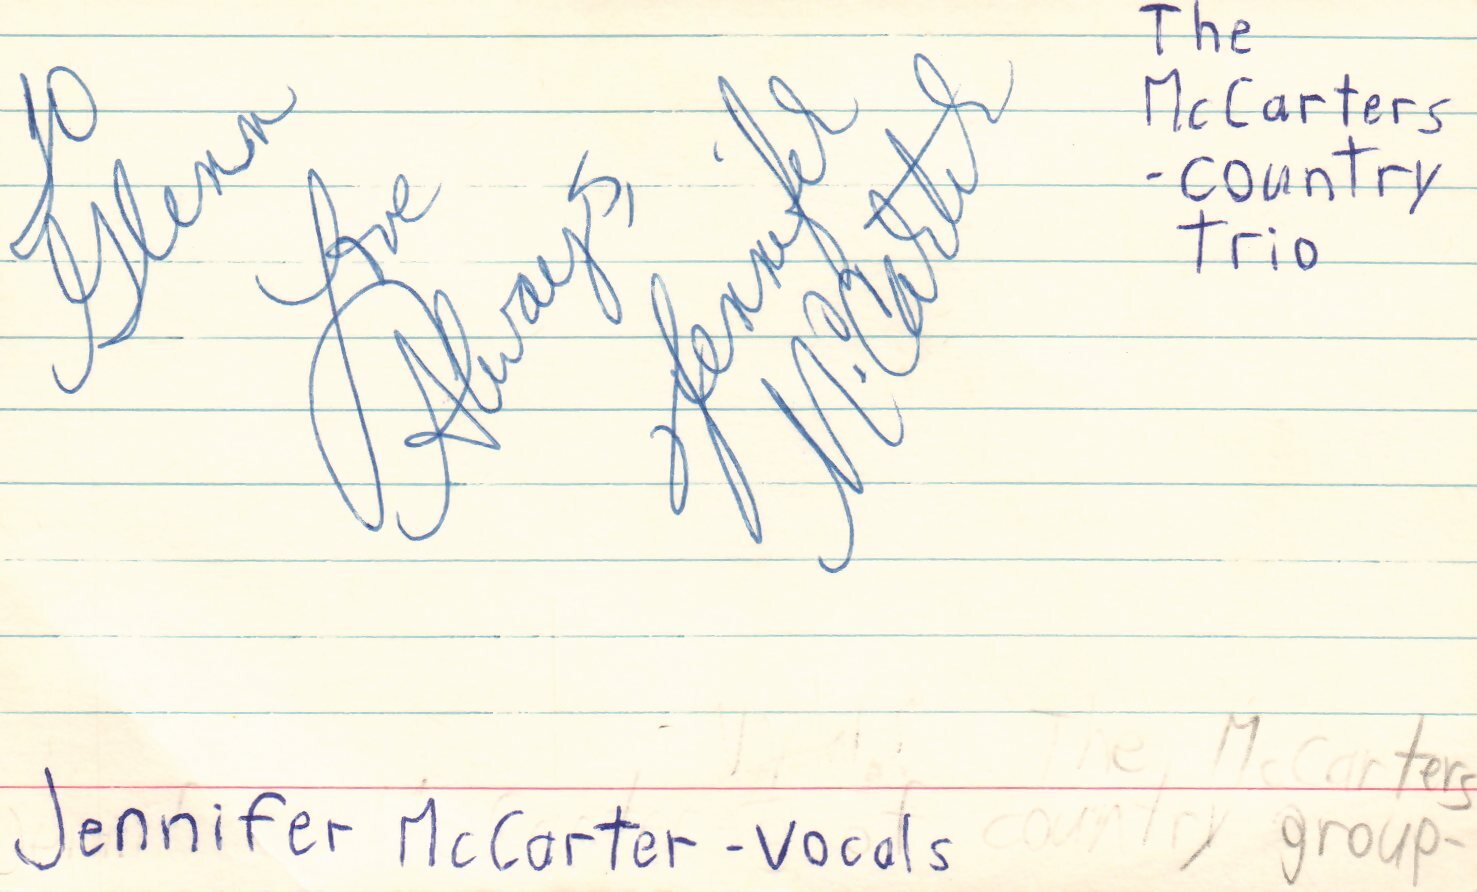 To
Glenn
Love
Always,
Jennifer
McCarter
The
McCarters
- country
trio
The McCarters
country group-
Jennifer McCarter - vocals